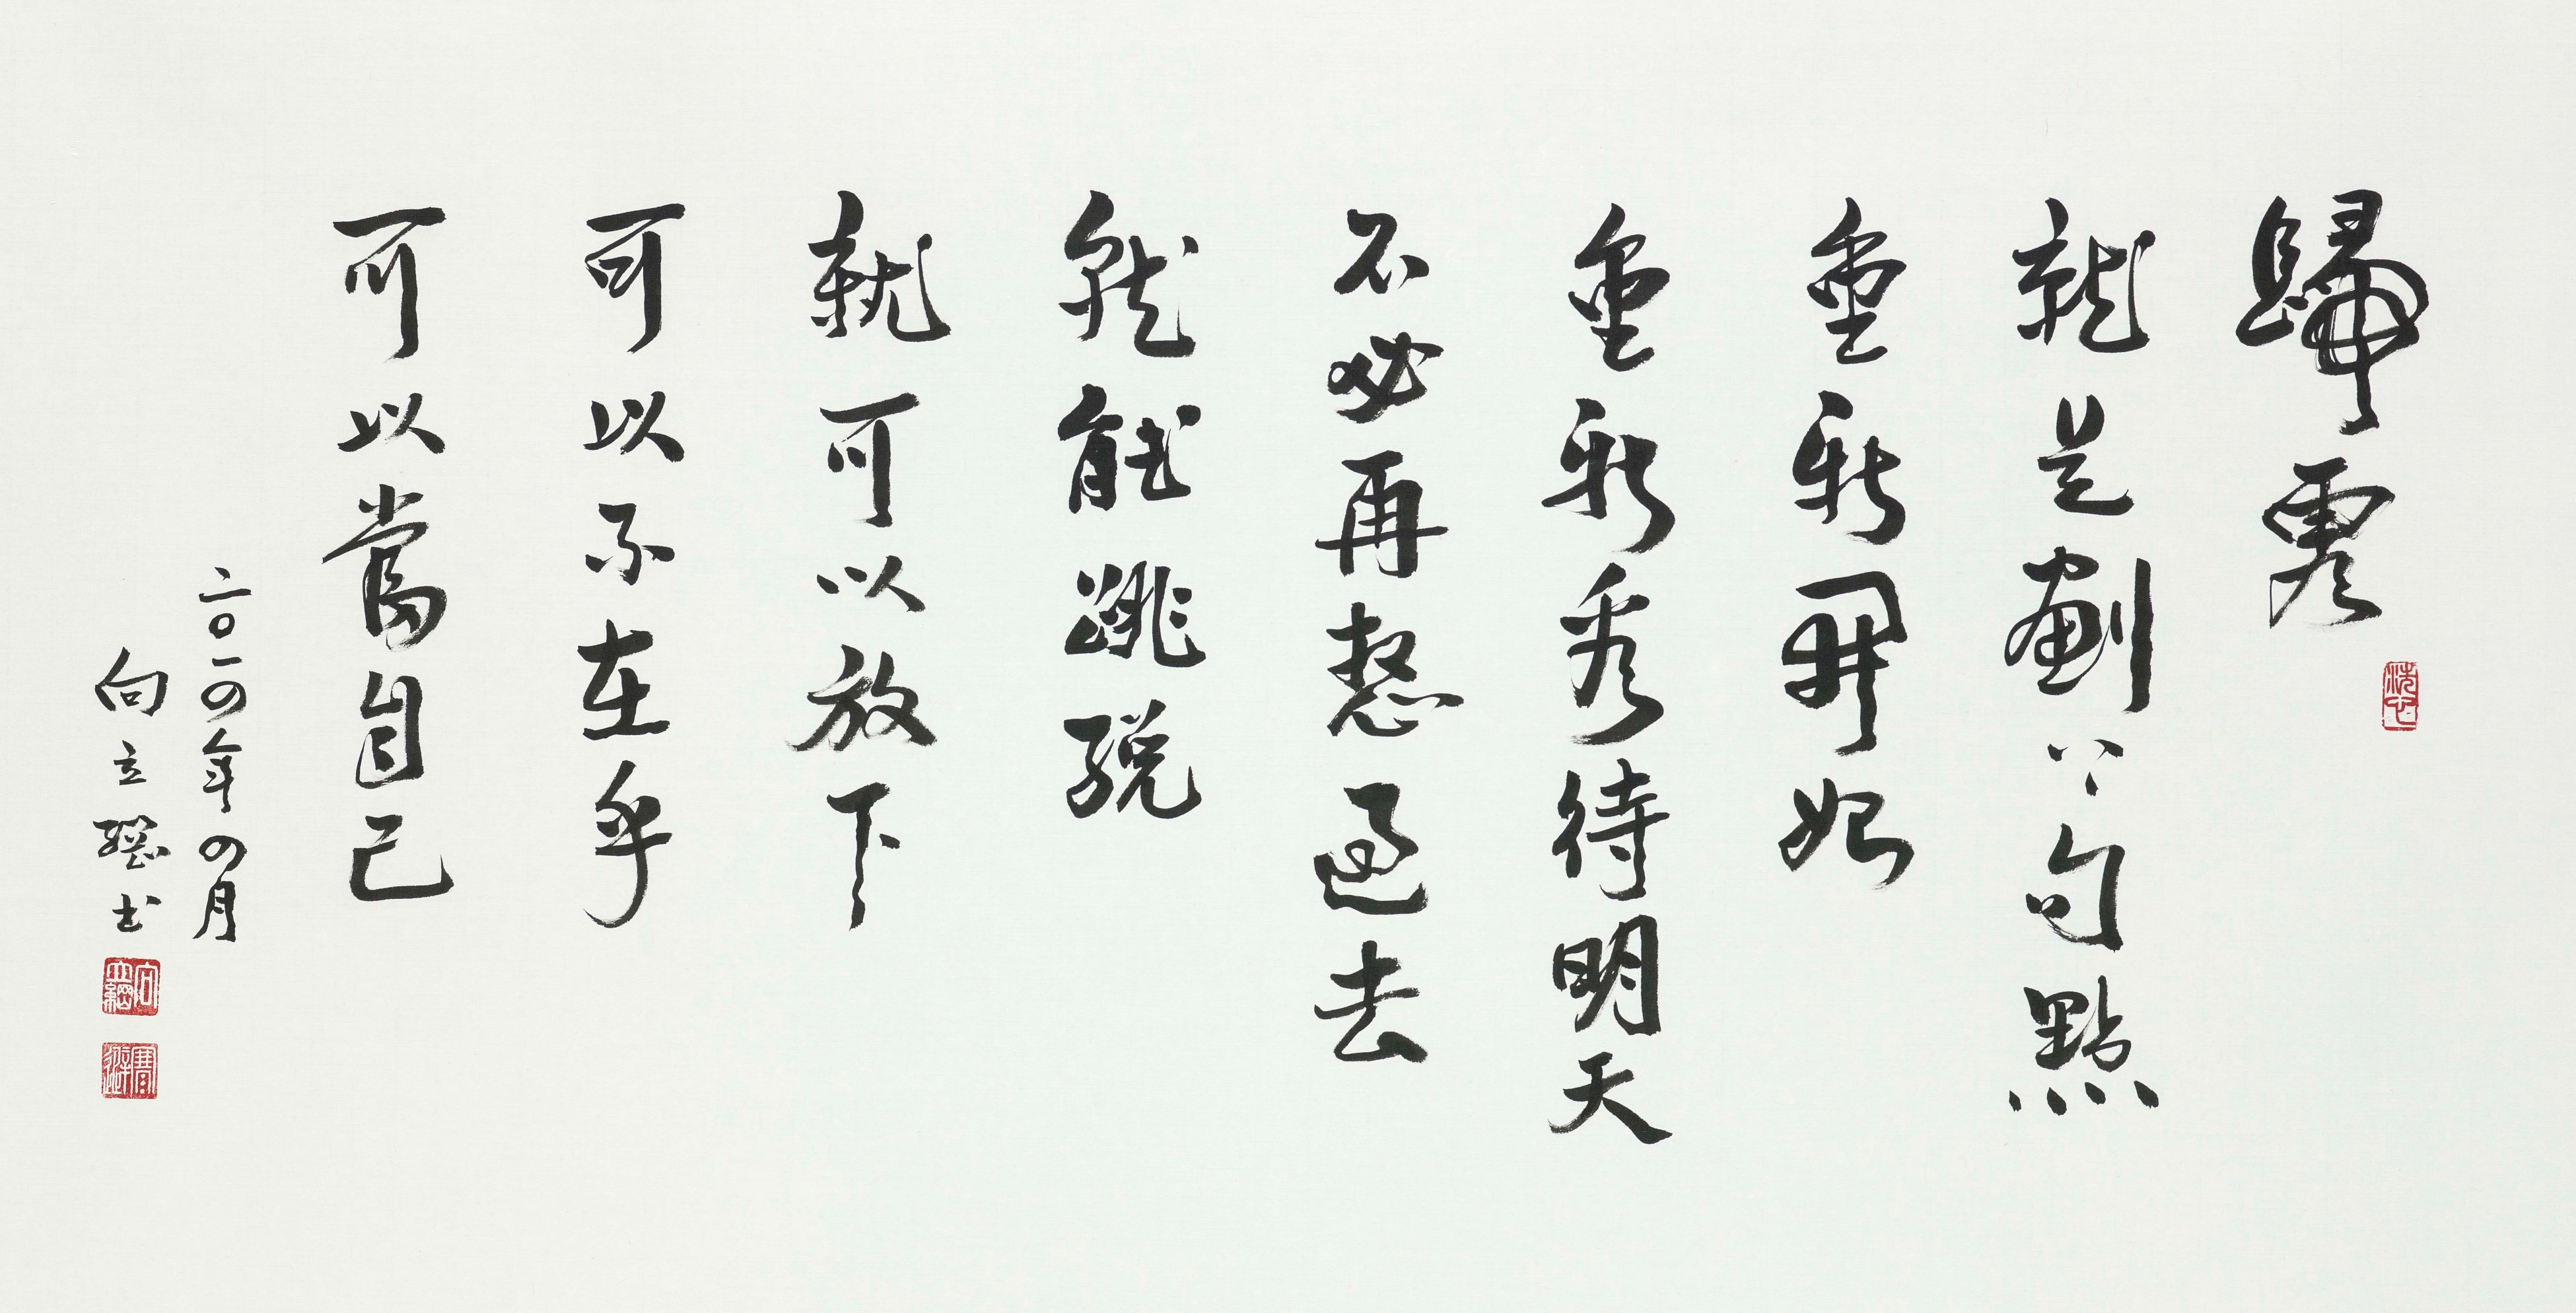 歸零
就是劃下句點
重新開始
重新看待明天
不必再愁過去
就能跳脫
就可以放下
可以不在乎
可以當自己
二〇一四年四月
向立綱書
向立綱